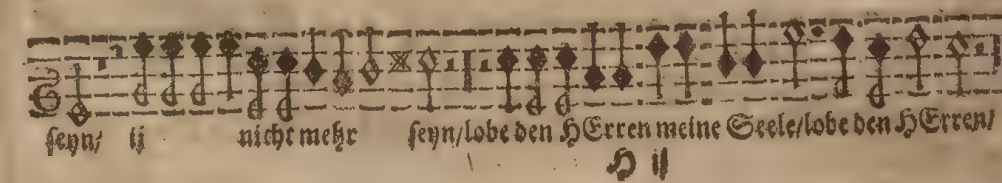 seyn/ ij nicht mehr seyn/lobe den HErren meine Seele/lobe den HErren/
H ij